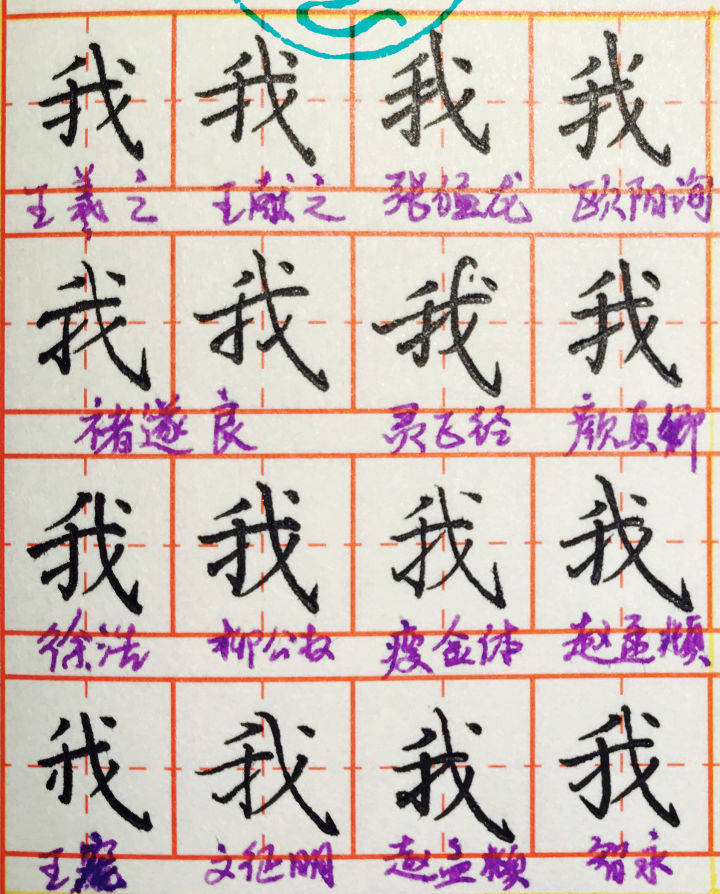 我 我 我 我
王羲之 王献之 张猛龙 欧阳询
我 我 我 我
褚遂良 灵飞经 颜真卿
我 我 我 我
徐浩 柳公权 瘦金体 赵孟頫
我 我 我 我
王宠 文征明 赵孟頫 智永